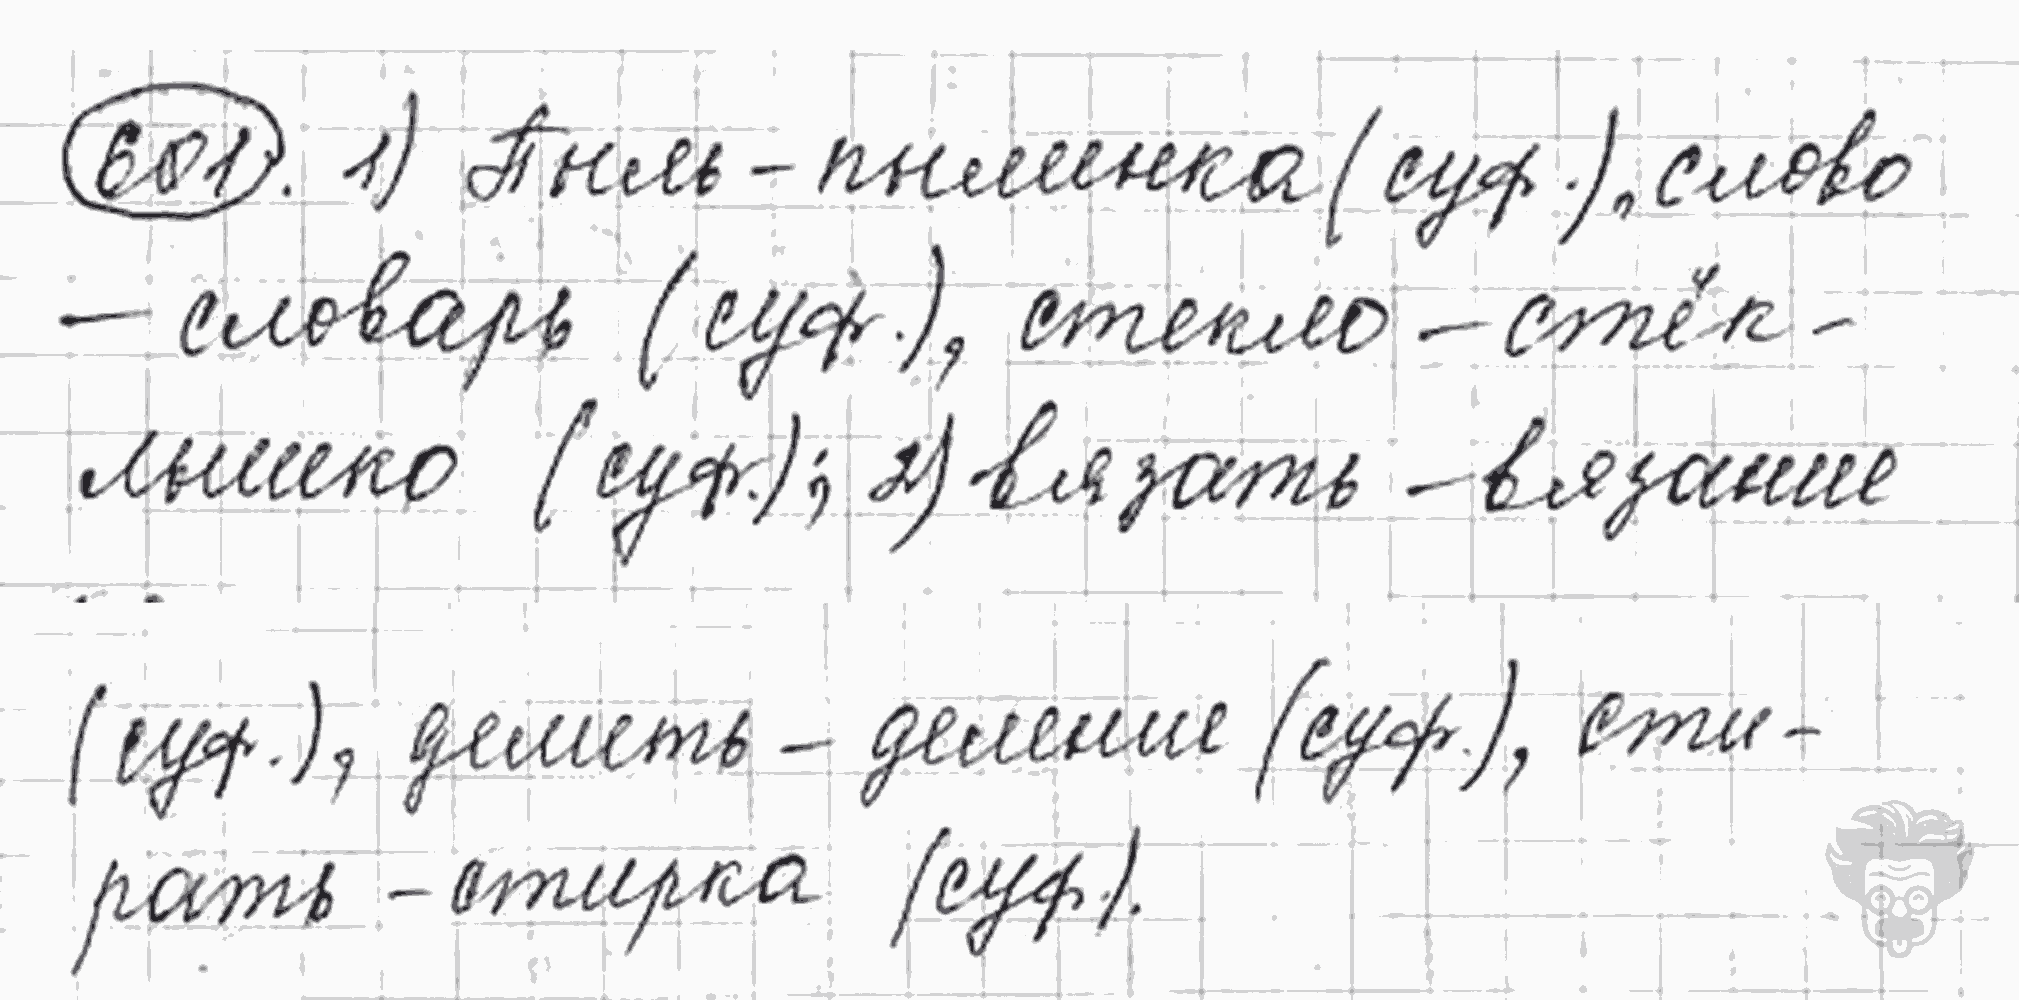 601. 1) Пыль - пылинка (суф.), слово
- словарь (суф.), стекло - стёк-
лышко (суф.); 2) вязать - вязание
(суф.), делить - деление (суф.), сти-
рать - стирка (суф.).